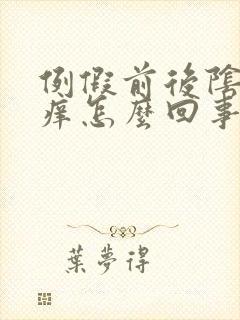 例假前後陰
痒怎麼回事
葉夢得